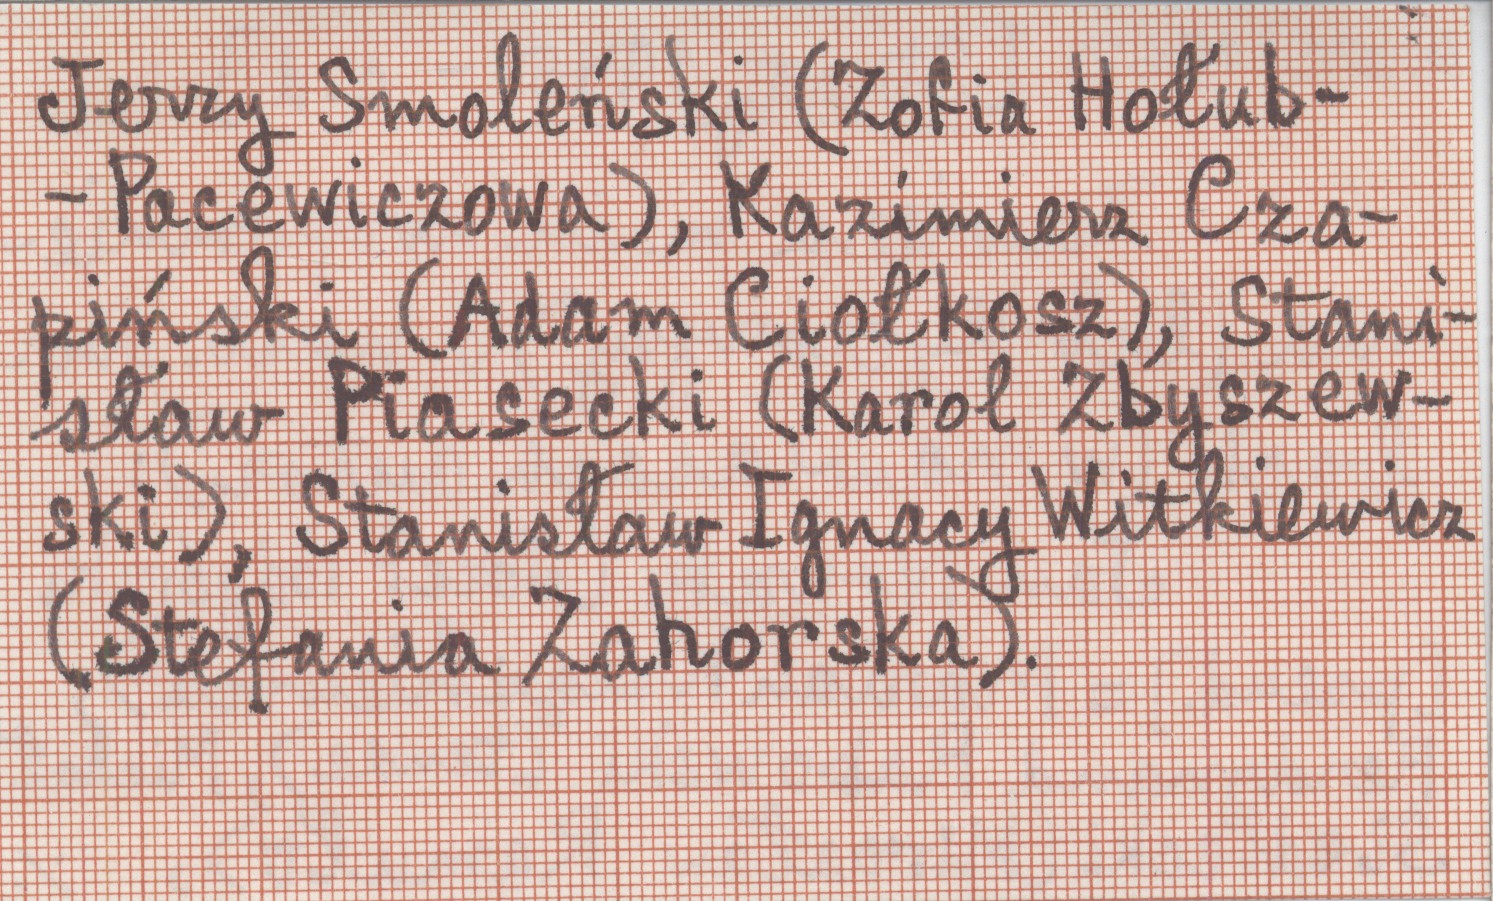 Jerzy Smoleński (Zofia Hołub-
-Pacewiczowa), Kazimierz Cza-
piński (Adam Ciołkosz), Stani-
sław Piasecki (Karol Zbyszew-
ski), Stanisław Ignacy Witkiewicz
(Stefania Zahorska).